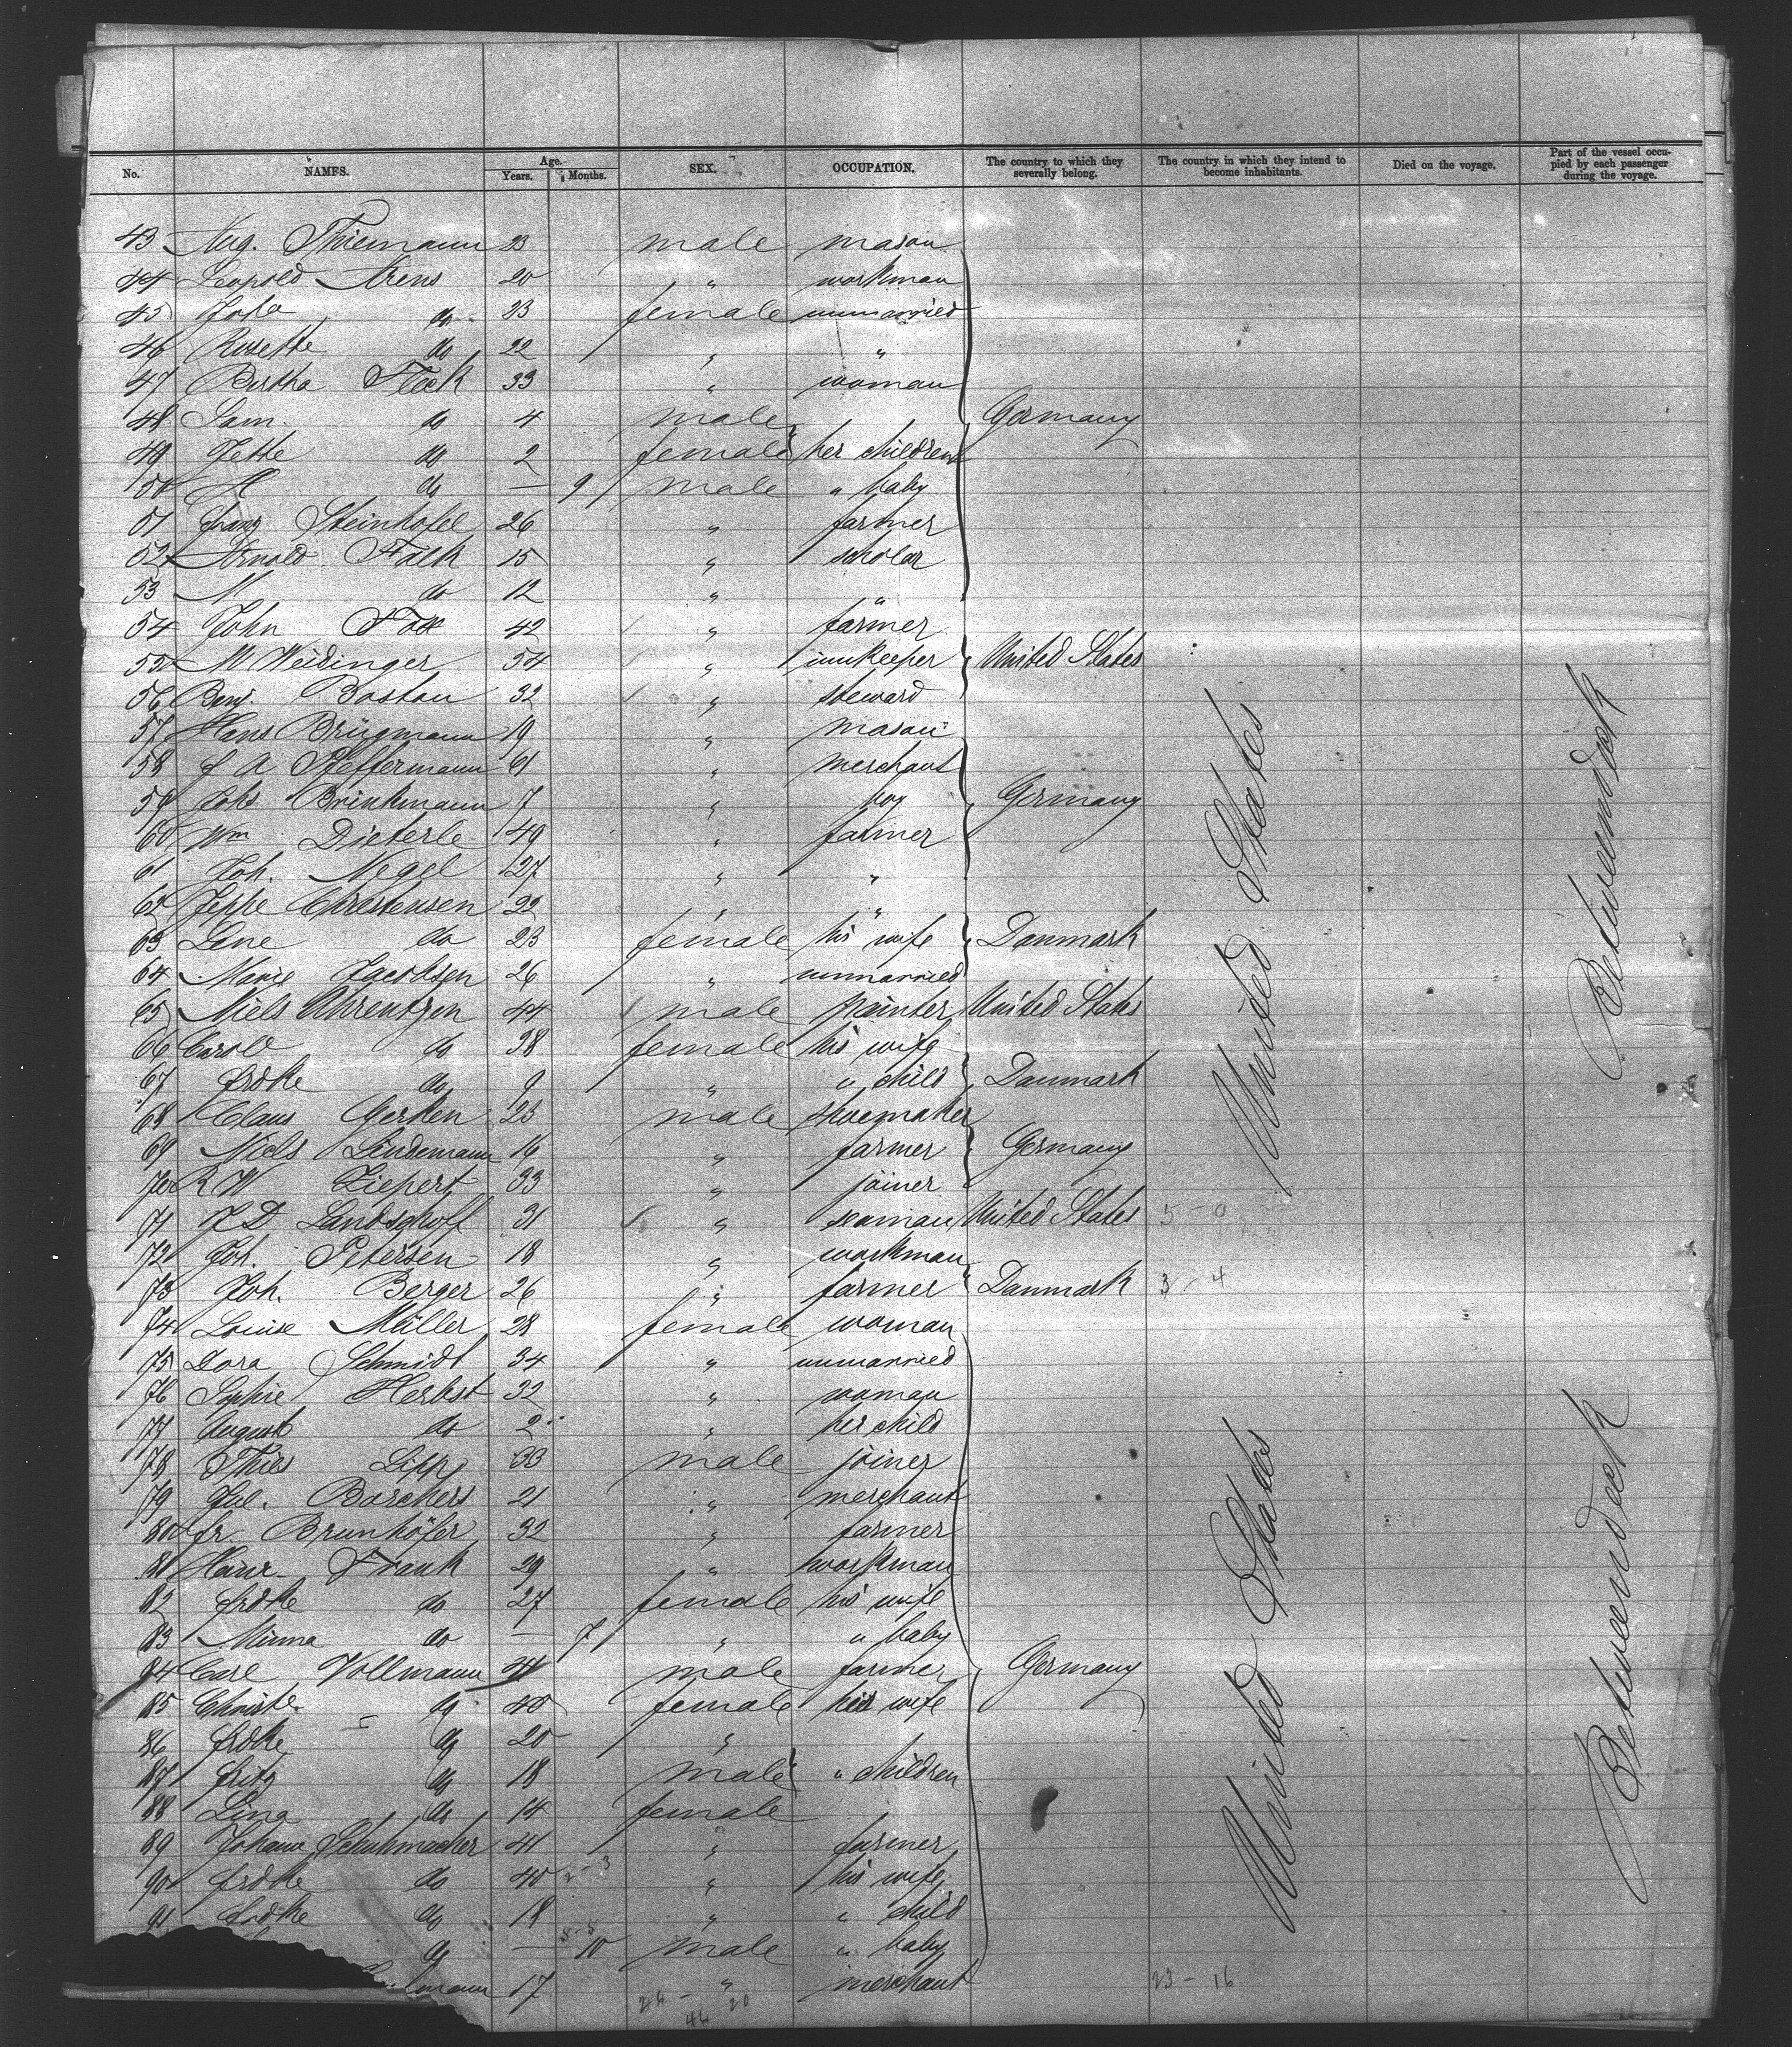 No. NAMES. Age. Years. Months. SEX. OCCUPATION. The country to which they severally belong. The country in which they intend to become inhabitants. Died on the voyage. Part of the vessel occupied by each passenger during the voyage.
43 Aug. Thiemann 23 male mason
44 Leopold Arens 20 " workman
45 do 23 female unmarried
46 Rosette do 22 " "
47 Bertha Fleck 33 " woman
48 Sam. do 4 male Germany
49 Jette do 2 female her children
50 H do — 9 male " baby
51 Franz Steinhofel 26 " farmer
52 Arnold Falk 15 " scholar
53 M do 12 " "
54 John Fox 42 " farmer
55 M Weidinger 54 " innkeeper United States
56 Benj. Boston 32 " steward
57 Hans Brügmann 19 " mason
58 J A Pfeffermann 61 " merchant
59 Johs Brinkmann 7 " boy Germany
60 Wm Dieterle 49 " farmer
61 Joh. Negel 27 " "
62 Jeppe Christensen 22 " "
63 Lene do 23 female his wife Danmark
64 Marie Jacobsen 26 " unmarried
65 Niels Ahrentzen 44 male painter United States
66 Carol do 38 female his wife
67 Frdke do 9 " " child Danmark
68 Claus Gerken 23 male shoemaker
69 Niels Lindemann 16 " farmer Germany
70 R W Ziepert 33 " joiner
71 J D Landsghoff 31 " seaman United States 5 - 0
72 Joh. Petersen 18 " workman
73 Joh. Berger 26 " farmer Danmark 3 - 4
74 Louise Müller 28 female woman
75 Dora Schmidt 34 " unmarried
76 Sophie Herbst 32 " woman
77 August do 2 " her child
78 Thies Lipp 33 male joiner
79 Jul. Borchers 21 " merchant
80 Fr. Brunhöfer 32 " farmer
81 Heinr. Frank 29 " workman
82 Frdke do 27 female his wife
83 Minna do — 7 " " baby
84 Carl Vollmann 41 male farmer Germany
85 Christ. do 40 female his wife
86 Frdke do 20 "
87 Fritz do 18 male " children
88 Lina do 14 female
89 Johann Schuhmacher 41 " farmer
90 Frdke do 40 " his wife
91 Frdke do 18 " " child
do — 10 male " baby
mann 17 " merchant 23 - 16
26 - 20
46
United States
Betweendeck
United States
Betweendeck